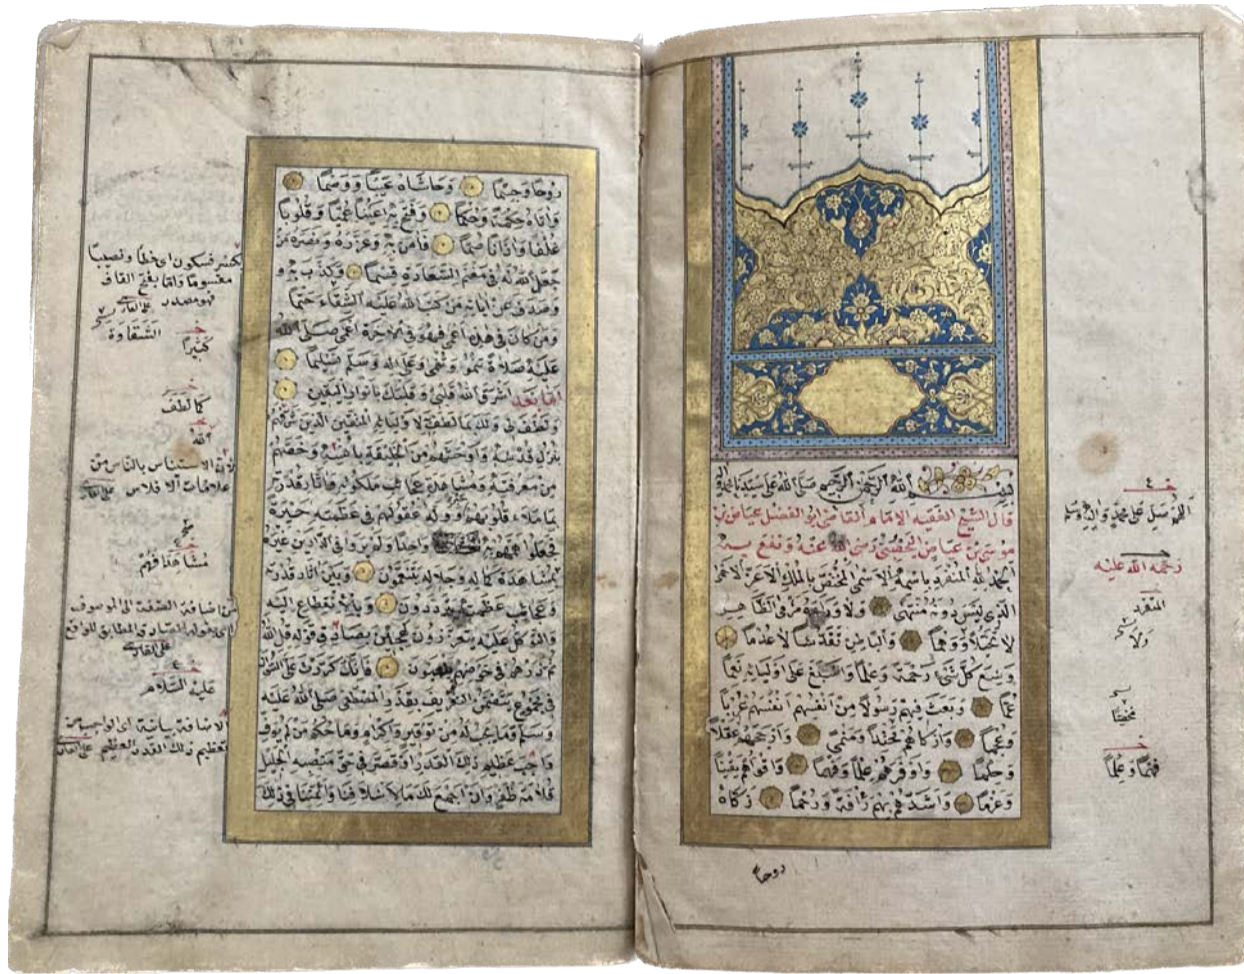 بسم الله الرحمن الرحيم صلى الله على سيدنا محمد وآله
قال الشيخ الفقيه الامام القاضى ابو الفضل عياض بن
موسى بن عياض اليحصبى رضى الله عنه ونفع به
الحمد لله المنفرد باسمه الاسمى المختص بالملك الاعز الاحمى
الذى ليس دونه منتهى ولا وراءه مرمى الظاهر
لا تخيلا ووهما والباطن تقدسا لا عدما
وسع كل شئ رحمة وعلما واسبغ على اوليائه نعما
عما وبعث فيهم رسولا من انفسهم انفسهم عربا
وعجما وازكاهم محتدا ومنمى وارجحهم عقلا
وحلما واوفرهم علما وفهما واقواهم يقينا
وعزما واشدهم بهم رأفة ورحما زكاه
روحا
اللهم صل على محمد وآله وسلم
رحمه الله عليه
المتفرد
ولا
مختصا
فهما وعلما
روحا وجسما وحاشاه عيبا ووصما
وآتاه حكمة وحكما وفتح به اعينا عميا وقلوبا
غلفا وآذانا صما فآمن به وعزره ونصره من
جعل الله له فى مغنم السعادة قسما وكذب به و
وصدف عن آياته من كتب الله عليه الشقاء حتما
ومن كان فى هذه اعمى فهو فى الآخرة اعمى صلى الله
عليه صلاة تنمو وتنمى وعلى آله وسلم تسليما
اما بعد اشرق الله قلبى وقلبك بانوار اليقين
ولطف لى ولك بما لطف لاوليائه المتقين الذين شرفهم
بنزل قدسه واوحشهم من الخليقة بانسه وخصهم
من معرفته ومشاهدة عجائب ملكوته وآثار قدرته
بما ملاء قلوبهم حبرة ووله عقولهم فى عظمته حيرة
فجعلوا همهم به واحدا ولم يروا فى الدارين غيره
بمشاهدة كماله وجلاله يتنعمون وبين آثار قدرته
وعجائب عظمته يترددون وبالانقطاع اليه
والتوكل عليه يتعززون لهجين بصادق قوله قل الله
ثم ذرهم فى خوضهم يلعبون فانك كررت على السؤال
فى مجموع يتضمن التعريف بقدر المصطفى صلى الله عليه
وسلم وما يجب له من توقير واكرام وما حكم من لم يوف
واجب عظيم ذلك القدر او قصر فى حق منصبه الجليل
قلامة ظفر وان اجمع لك ما لاسلافنا وائمتنا فى ذلك
بكسر فسكون اى حظا ونصيبا
مقسوما واما بفتح القاف
فهو مصدر على القارى
الشقاوة
كثيرا
كما لطف
الله
لان الاستئناس بالناس من
علامات الافلاس على القارى
مشاهدتهم
من اضافة الصفة الى الموصوف
اى بقوله الصادق المطابق للواقع
على القارى
عليه السلام
الاضافة بيانية اى الواجب من
تعظيم ذلك القدر العظيم على القارى